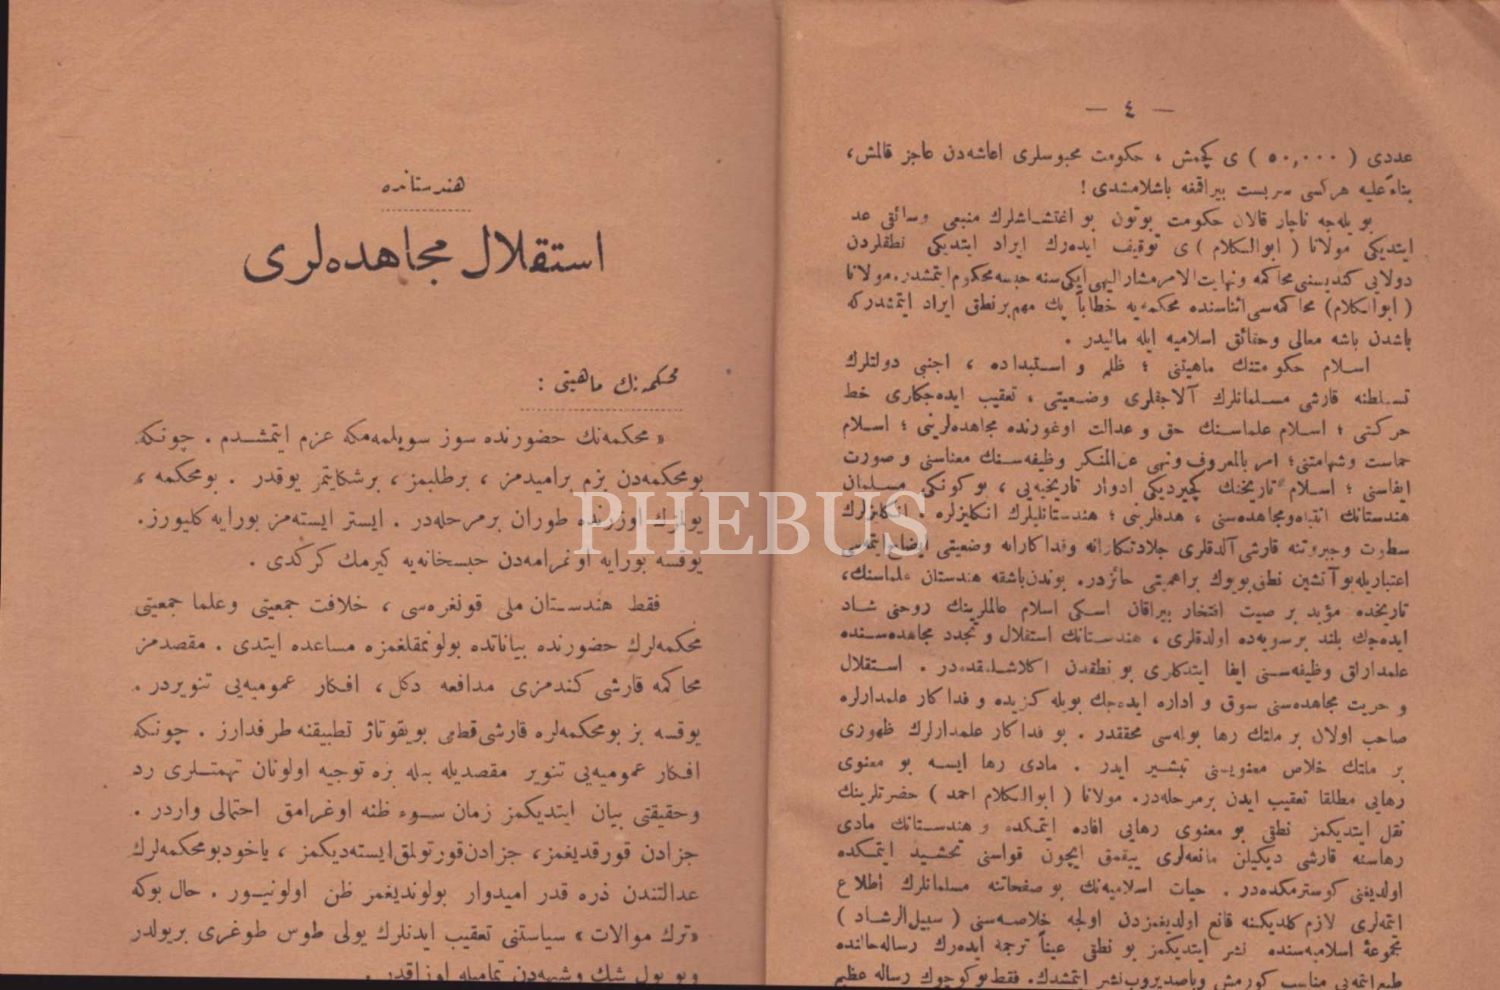 — ٤ —
عددی ( ٥٠,٠٠٠ ) ی کچمش ، حکومت محبوسلری اعاشه‌دن عاجز قالمش،
بناءً علیه هرکسی سربست بیراقمغه باشلامشدی !
بویله‌جه ناچار قالان حکومت بوتون بو اغتشاشلرك منبعی وسائقی عد
ایتدیکی مولانا ( ابوالکلام ) ی توقیف ایده‌رك ایراد ایتدیکی نطقلردن
دولایی کندیسنی محاکمه ونهایت‌الامر مشارالیهی ایکی سنه حبسه محکوم ایتمشدر. مولانا
( ابوالکلام ) محاکمه‌سی اثناسنده محکمه‌یه خطاباً پك مهم برنطق ایراد ایتمشدرکه
باشدن باشه معالی وحقائق اسلامیه ایله مالیدر .
اسلام حکومتنك ماهیتنی ؛ ظلم و استبداده ، اجنبی دولتلرك
تسلطنه قارشی مسلمانلرك آلاجقلری وضعیتی ، تعقیب ایده‌جکلری خط
حرکتی ؛ اسلام علماسنك حق و عدالت اوغورنده مجاهده‌لرینی ؛ اسلام
حماست وشهامتنی؛ امر بالمعروف ونهی عن‌المنکر وظیفه‌سنك معناسنی و صورت
ایفاسنی ؛ اسلام تاریخنك کچیردیکی ادوار تاریخیه‌یی ، بوکونکی مسلمان
هندستانك انتباه ومجاهده‌سنی ، هدفلرینی ؛ هندستانلیلرك انکلیزلره ، انکلیزلرك
سطوت وجبروتنه قارشی آلدقلری جلادتکارانه وفداکارانه وضعیتی ایضاح ایتمه‌سی
اعتباریله بو آتشین نطق بویوك براهمیتی حائزدر. بوندن باشقه هندستان علماسنك،
تاریخده مؤبد بر صیت افتخار بیراقان اسکی اسلام عالملرینك روحنی شاد
ایده‌جك بلند برسویه‌ده اولدقلری ، هندستانك استقلال و تجدد مجاهده‌سنده
علمدارلق وظیفه‌سنی ایفا ایتدکلری بو نطقدن اکلاشلمقده‌در . استقلال
و حریت مجاهده‌سنی سوق و اداره ایده‌جك بویله کزیده و فداکار علمدارلره
صاحب اولان بر ملتك رها بولمسی محققدر . بو فداکار علمدارلرك ظهوری
بر ملتك خلاص معنویسنی تبشیر ایدر . مادی رها ایسه بو معنوی
رهایی مطلقا تعقیب ایدن برمرحله‌در. مولانا ( ابوالکلام احمد ) حضرتلرینك
نقل ایتدیکمز نطقی بو معنوی رهایی افاده ایتمکده و هندستانك مادی
رهاسنه قارشی دیکیلن مانعه‌لری ییقمق ایچون قواسنی تحشید ایتمکده
اولدیغنی کوسترمکده‌در . حیات اسلامیه‌نك بو صفحاتنه مسلمانلرك اطلاع
ایتمه‌لری لازم کلدیکنه قانع اولدیغمزدن اولجه خلاصه‌سنی ( سبیل‌الرشاد )
مجموعهٔ اسلامیه‌سنده نشر ایتدیکمز بو نطقی عیناً ترجمه ایده‌رك رساله حالنده
طبع ایتمه‌یی مناسب کورمش ویاصدیروب نشر ایتمشدك. فقط بوکوچوك رساله عظیم
هندستانده
استقلال مجاهده‌لری
محکمه‌نك ماهیتی :
« محکمه‌نك حضورنده سوز سویلمه‌مکه عزم ایتمشدم . چونکه
بومحکمه‌دن بزم برامیدمز ، برطلبمز ، برشکایتمز یوقدر . بومحکمه ،
یولمزك اوزرنده طوران برمرحله‌در . ایستر ایسته‌مز بورایه کلیورز.
یوقسه بورایه اوغرامه‌دن حبسخانه‌یه کیرمك کرکدی .
فقط هندستان ملی قونغره‌سی ، خلافت جمعیتی وعلما جمعیتی
محکمه‌لرك حضورنده بیاناتده بولونمقلغمزه مساعده ایتدی . مقصدمز
محاکمه قارشی کندمزی مدافعه دکل ، افکار عمومیه‌یی تنویردر .
یوقسه بز بومحکمه‌لره قارشی قطعی بویقوتاژ تطبیقنه طرفدارز . چونکه
افکار عمومیه‌یی تنویر مقصدیله بیله بزه توجیه اولونان تهمتلری رد
وحقیقتی بیان ایتدیکمز زمان سوء ظنه اوغرامق احتمالی واردر .
جزادن قورقدیغمز، جزادن قورتولمق ایسته‌دیکمز ، یاخود بومحکمه‌لرك
عدالتندن ذره قدر امیدوار بولوندیغمز ظن اولونیور . حال بوکه
«ترك موالات» سیاستنی تعقیب ایدنلرك یولی طوس طوغری بریولدر
وبو یول شك وشبهه‌دن تمامیله اوزاقدر .
PHEBUS